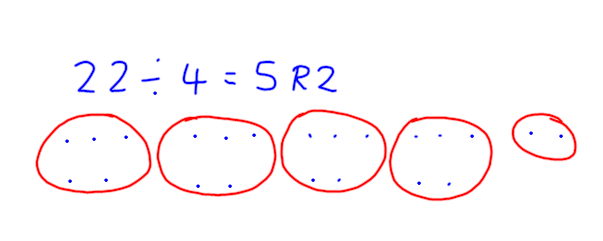 22 ÷ 4 = 5 R2